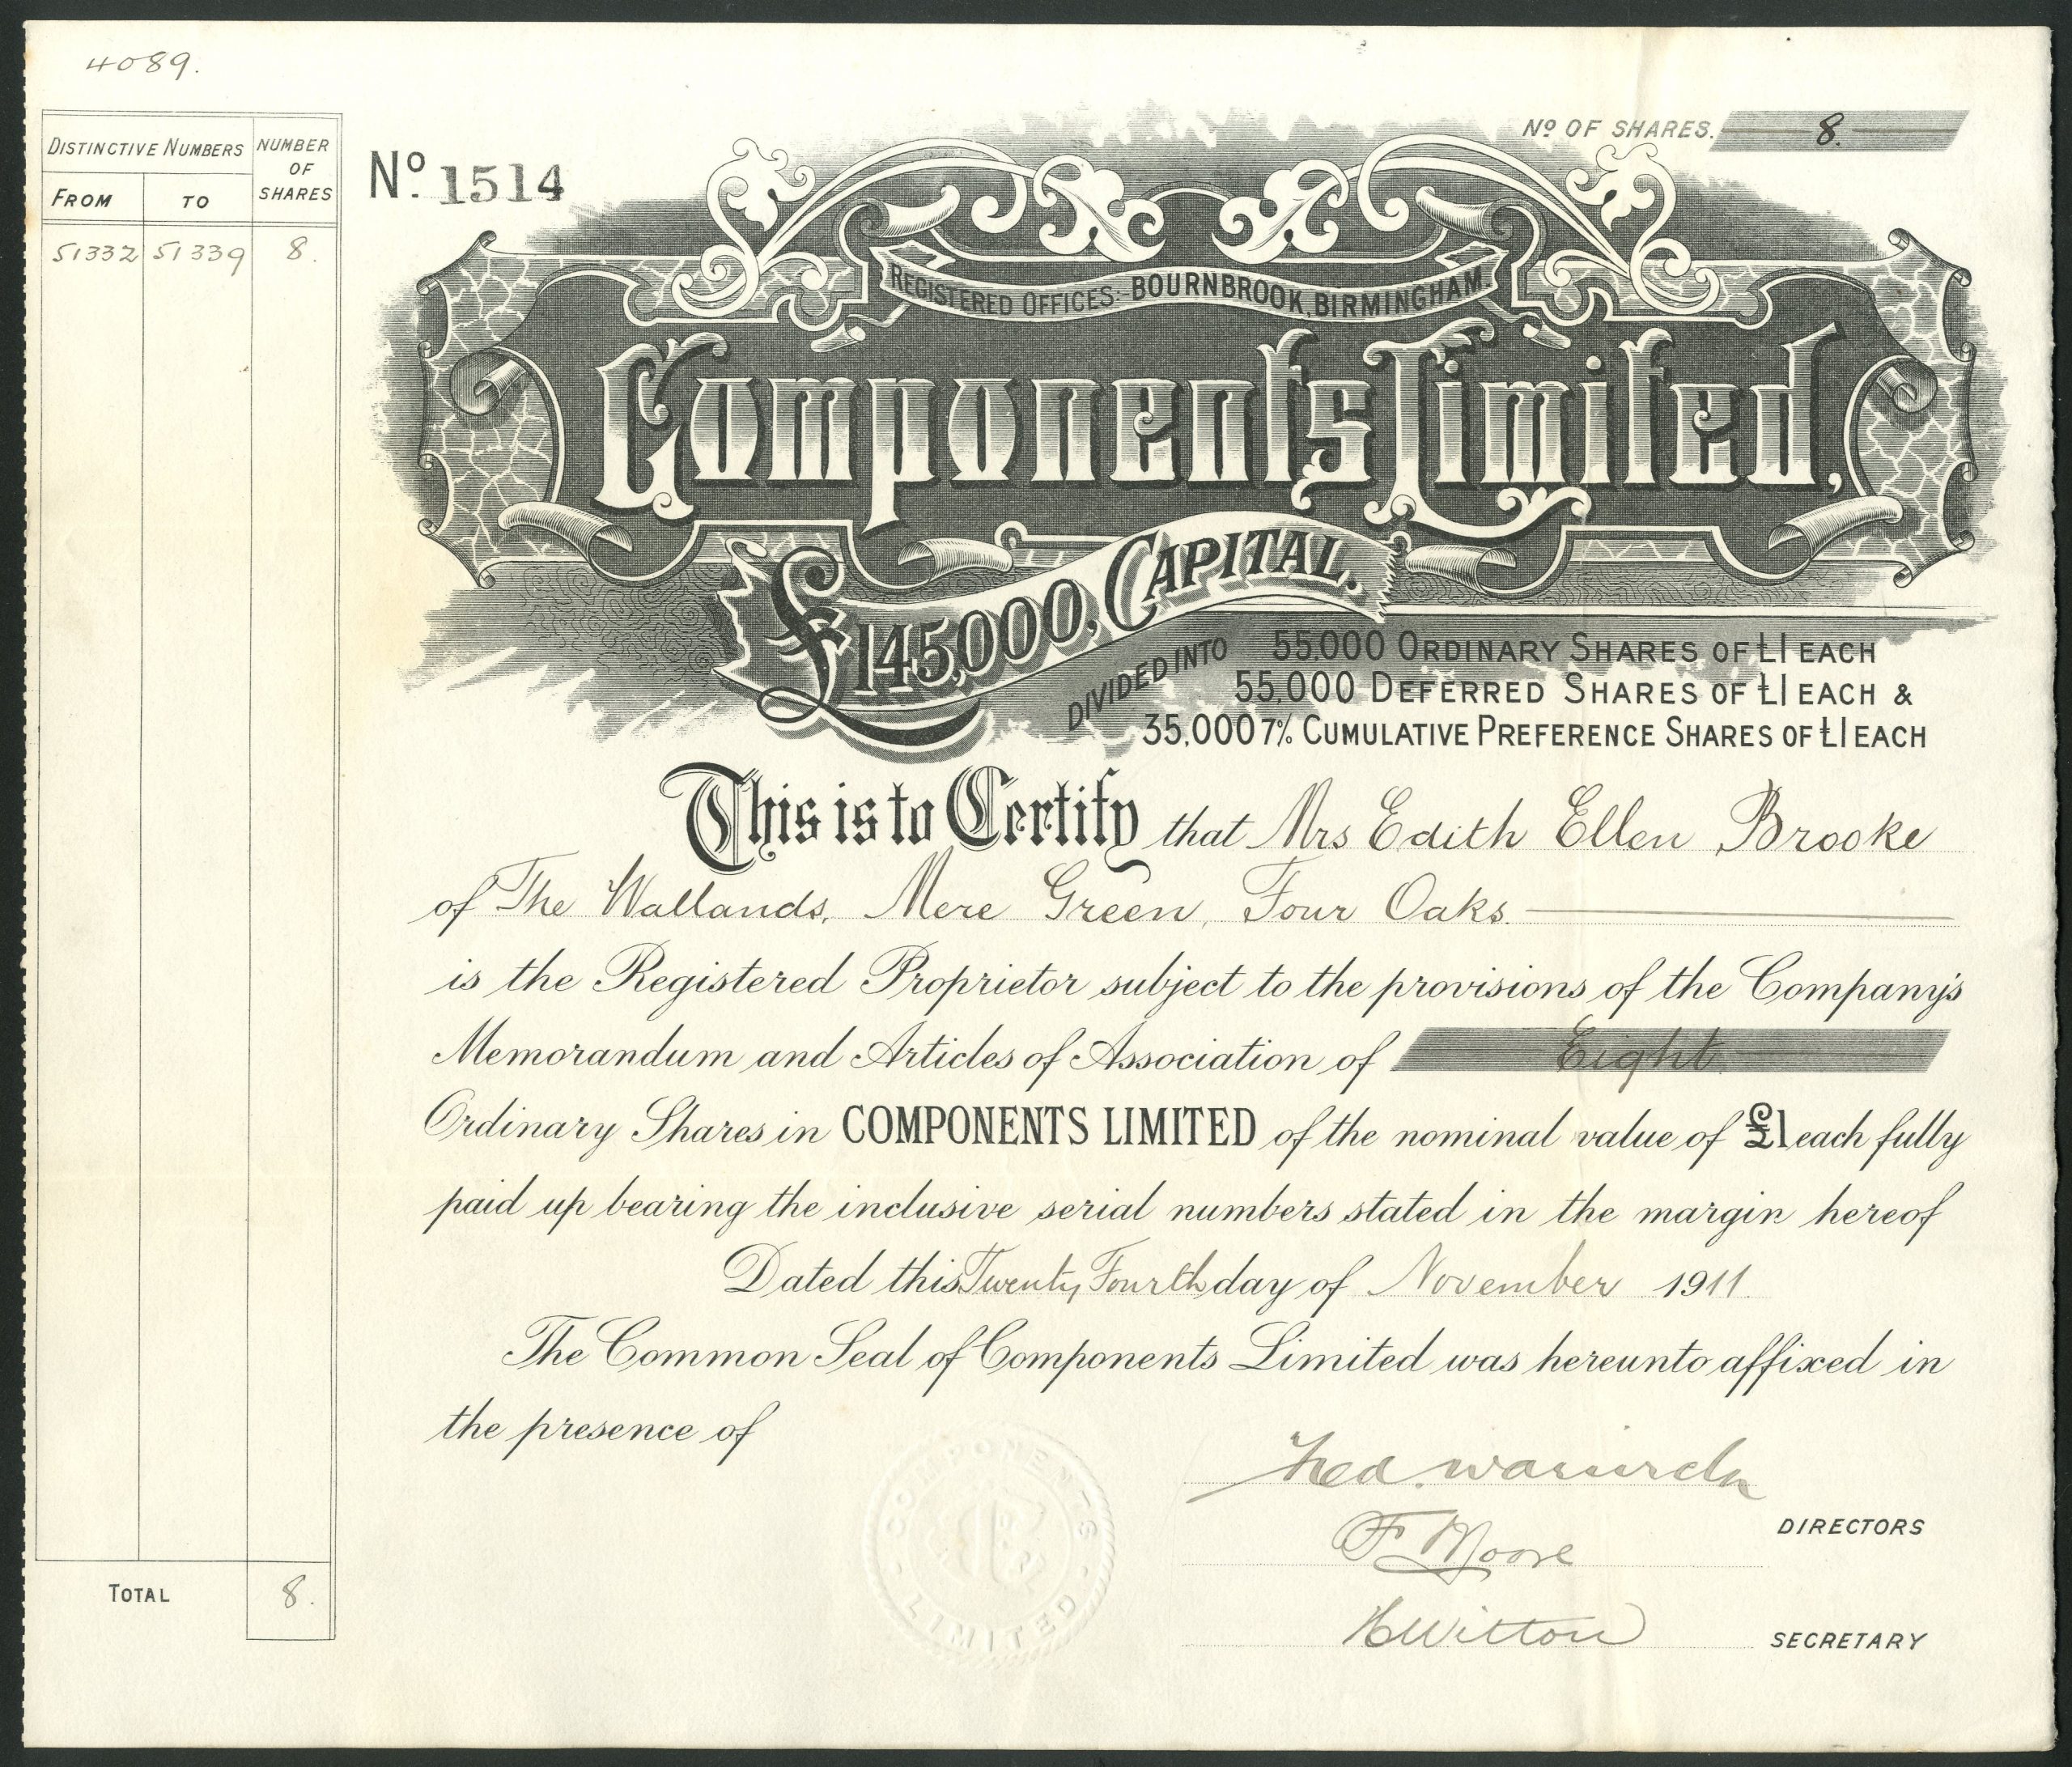 4089.
DISTINCTIVE NUMBERS
NUMBER OF SHARES
FROM TO
51332 51339 8.
TOTAL 8.
No. 1514
No OF SHARES. 8.
REGISTERED OFFICES:- BOURNBROOK, BIRMINGHAM.
Components Limited,
£145,000, CAPITAL.
DIVIDED INTO 55,000 ORDINARY SHARES OF £1 EACH
55,000 DEFERRED SHARES OF £1 EACH &
35,000 7% CUMULATIVE PREFERENCE SHARES OF £1 EACH
This is to Certify that Mrs Edith Ellen Brooke
of The Wallands, Mere Green, Four Oaks.
is the Registered Proprietor subject to the provisions of the Company's
Memorandum and Articles of Association of Eight
Ordinary Shares in COMPONENTS LIMITED of the nominal value of £1 each fully
paid up bearing the inclusive serial numbers stated in the margin hereof
Dated this Twenty Fourth day of November 1911.
The Common Seal of Components Limited was hereunto affixed in
the presence of
COMPONENTS LIMITED
F Moore
DIRECTORS
H Witton
SECRETARY